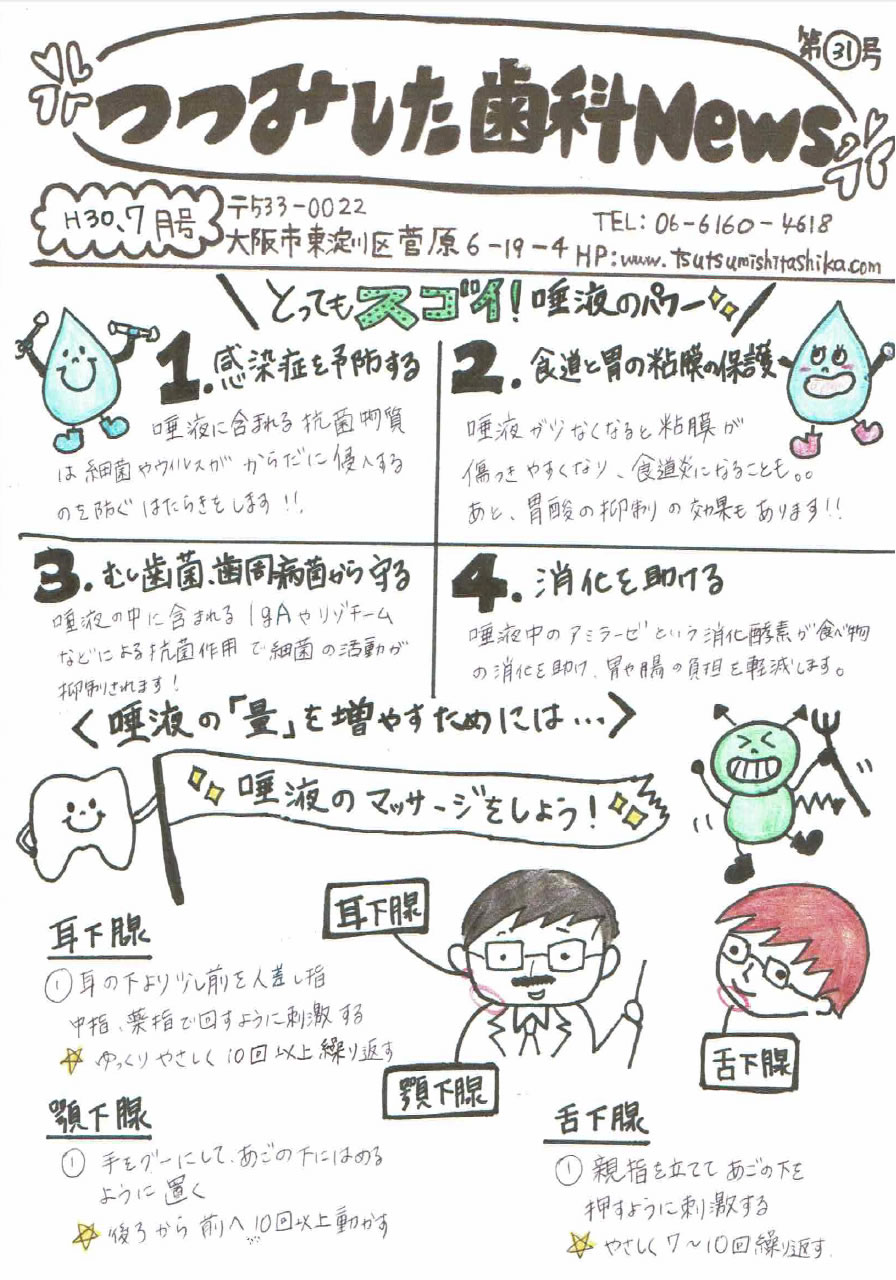 第31号
つつみした歯科News
H30.7月号
〒533-0022
大阪市東淀川区菅原6-19-4
TEL: 06-6160-4618
HP: www.tsutsumishitashika.com
とってもスゴイ!唾液のパワー
1.感染症を予防する
唾液に含まれる抗菌物質
は細菌やウィルスがからだに侵入する
のを防ぐはたらきをします!!
2.食道と胃の粘膜の保護
唾液が少なくなると粘膜が
傷つきやすくなり、食道炎になることも。。
あと、胃酸の抑制の効果もあります!!
3.むし歯菌、歯周病菌から守る
唾液の中に含まれるIgAやリゾチーム
などによる抗菌作用で細菌の活動が
抑制されます!
4.消化を助ける
唾液中のアミラーゼという消化酵素が食べ物
の消化を助け、胃や腸の負担を軽減します。
<唾液の「量」を増やすためには…>
唾液のマッサージをしよう!
耳下腺
顎下腺
舌下腺
耳下腺
①耳の下より少し前を人差し指
中指、薬指で回すように刺激する
☆ゆっくりやさしく10回以上繰り返す
顎下腺
①手をグーにして、あごの下にはめる
ように置く
☆後ろから前へ10回以上動かす
舌下腺
①親指を立ててあごの下を
押すように刺激する
☆やさしく7~10回繰り返す